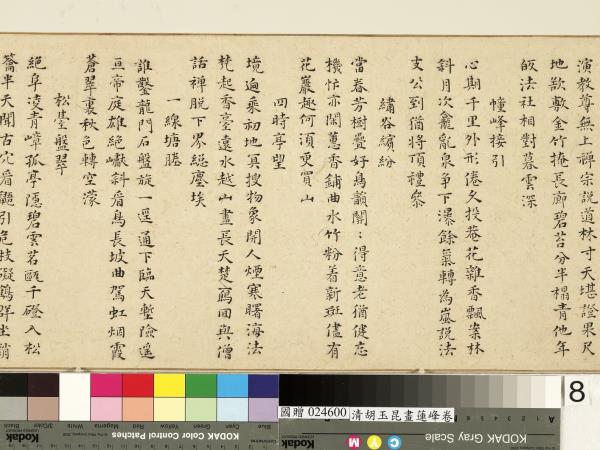 演教尊無上禪宗説道林寸天堪證果尺
地欲敷金竹掩長廊碧苔分半榻青他年
皈法社相對暮雲深
幢峰接引
心期千里外形倦夕投菴花雜香飄案林
斜月次龕亂泉爭下瀑餘氣轉為嵐說法
支公到猶將頂禮叅
繡谷繽紛
當春芳樹疊好鳥韻關〻得意老猶健忘
機忙亦閒蕙香鋪曲水竹粉着新斑儘有
花巖趣何須更買山
四時亭望
境遍乘初地冥搜物象閒人煙寒曙海法
梵起香臺遠水越山盡長天楚雁回與僧
話禪脫下界絕塵埃
一線塘勝
誰鑿龍門石盤旋一逕通下臨天塹險遥
亘帝庭雄絕巘斜看鳥長坡曲駕虹烟霞
蒼翠裏秋色轉空濛
松磴盤翠
絕阜凌青嶂孤亭隱碧雲若 千磴入松
半天聞古穴看 引危枝礙鶴群坐
8
國贈 024600 清胡玉昆畫蓮峰卷
KODAK Gray Scale
C Y M
Kodak
KODAK Color Control Patches
Blue Cyan Green Yellow Red Magenta White 3/Color Black